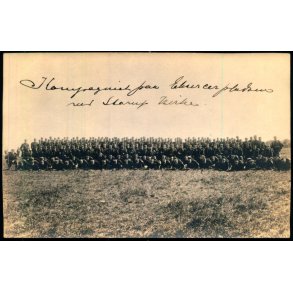 Kompagniet paa Exercerpladsen
ved Starup Kirke.